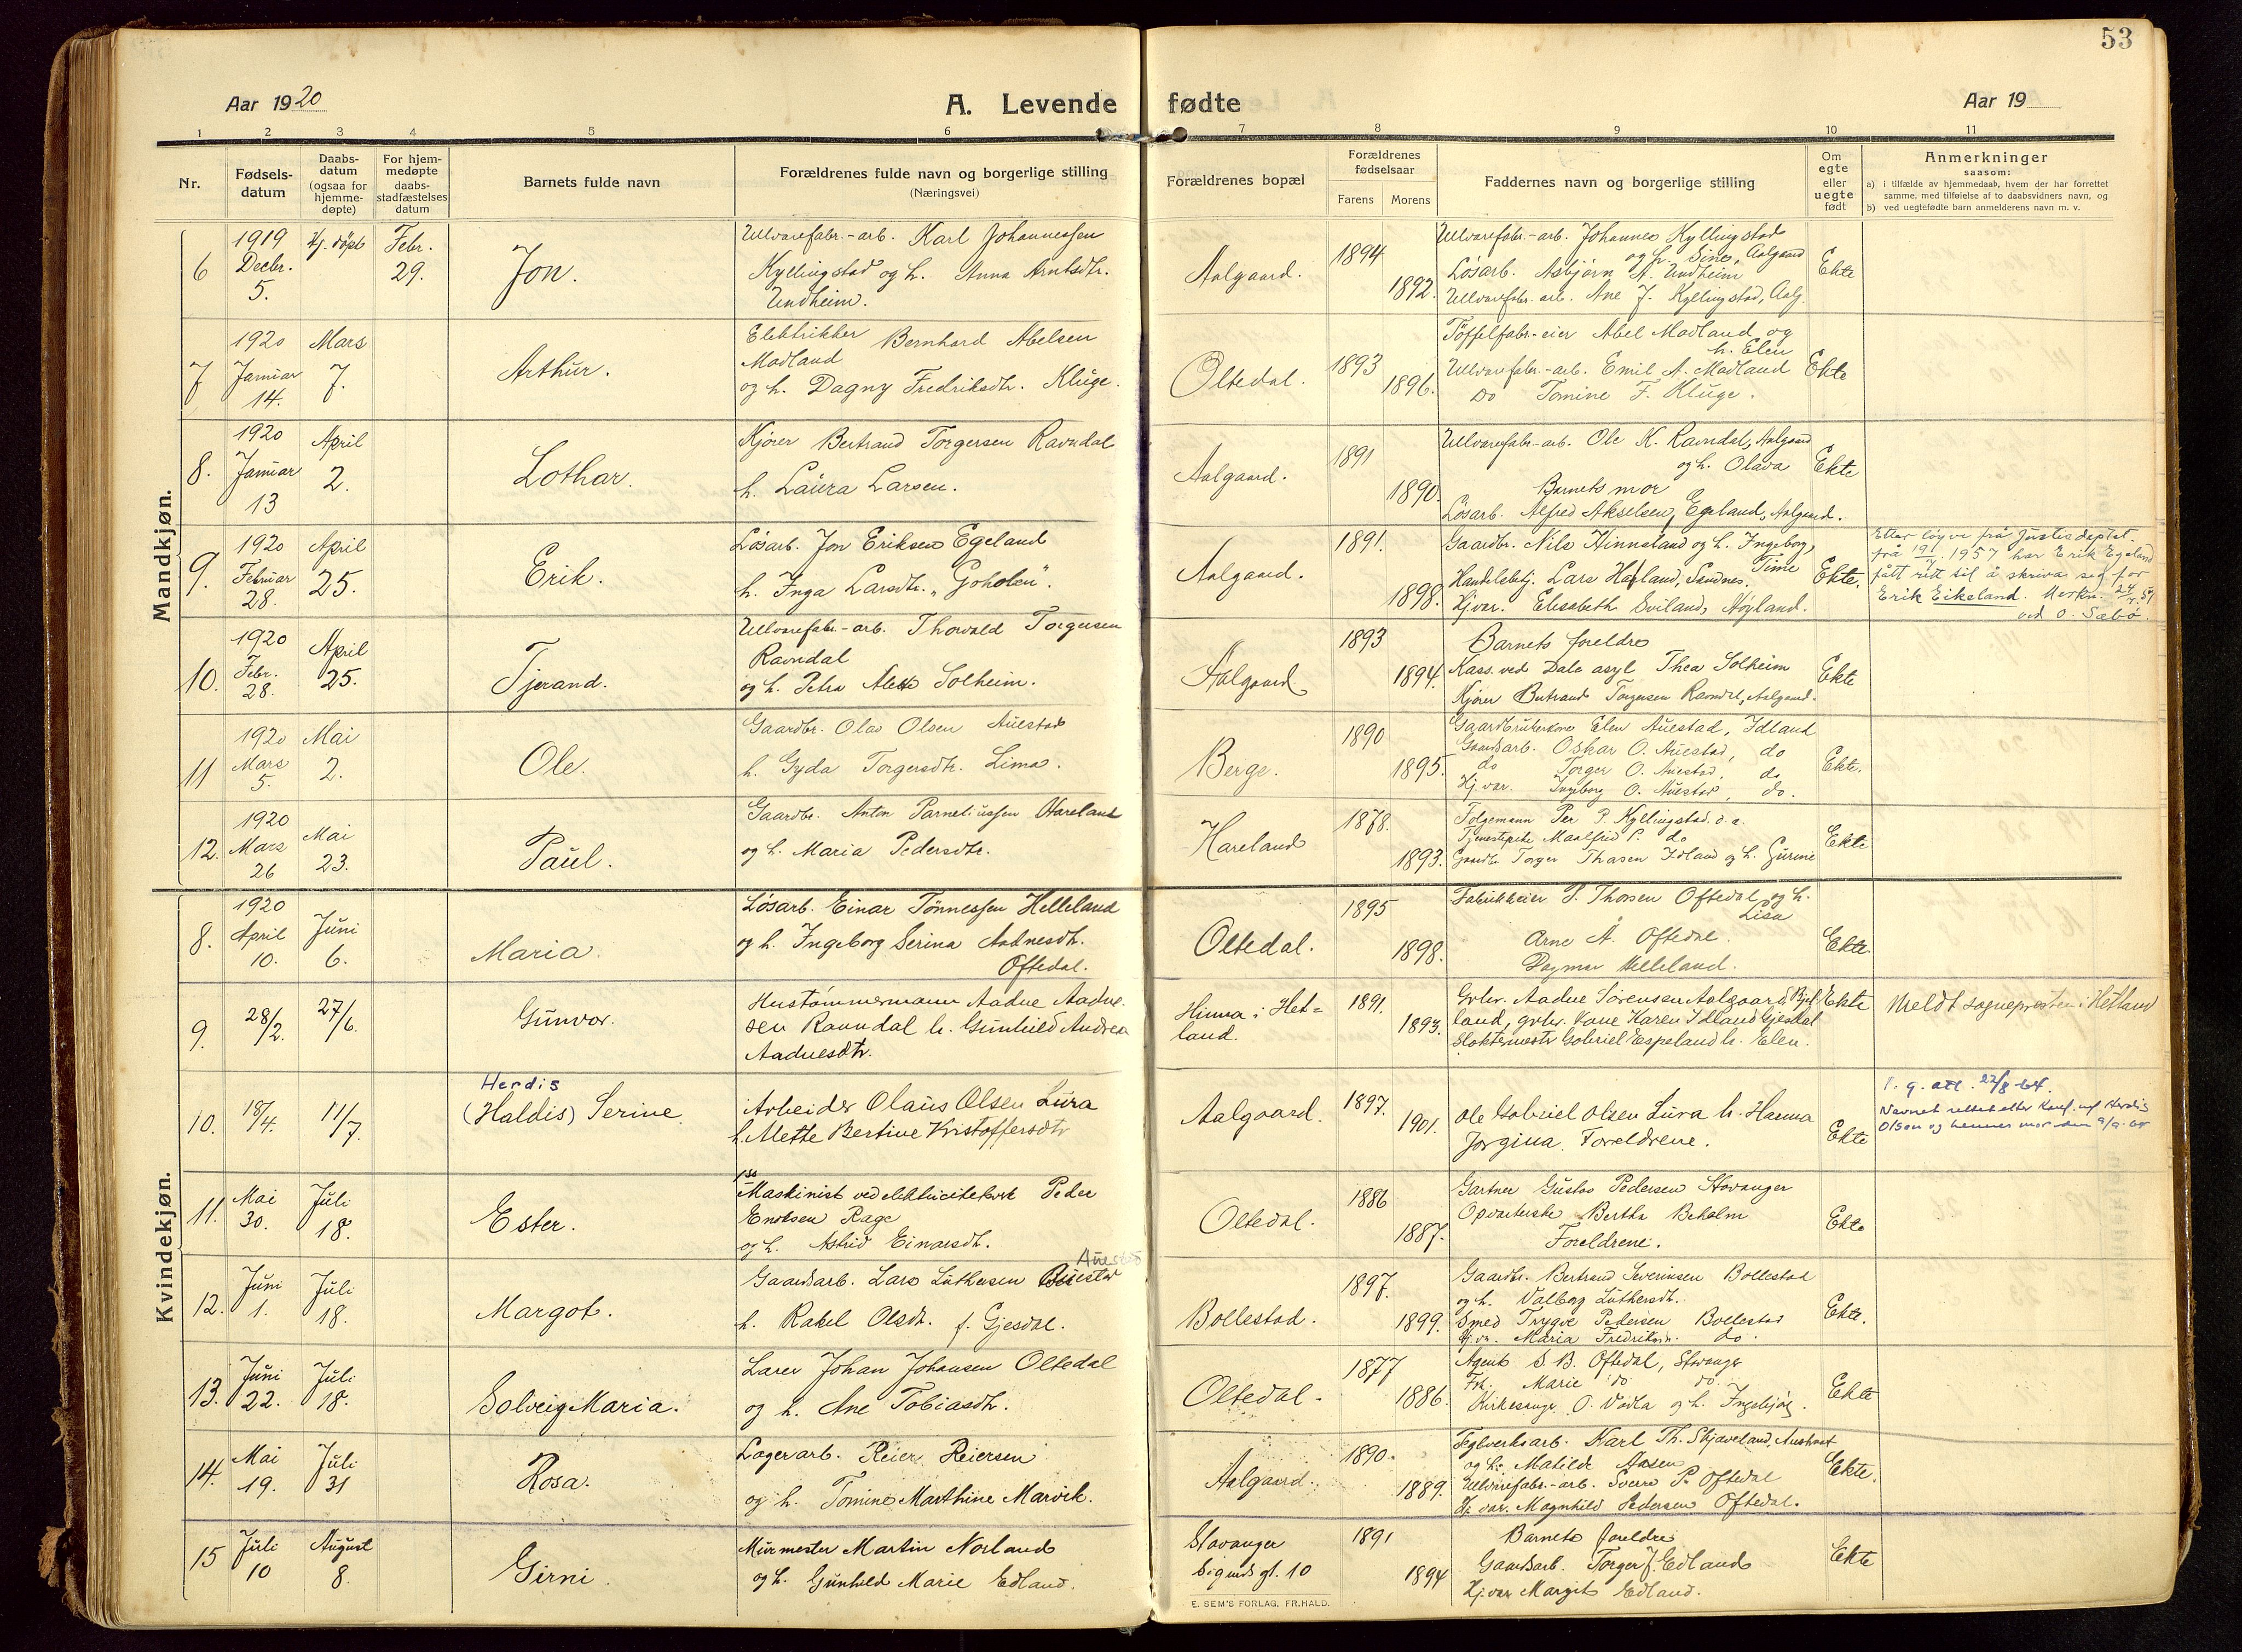 53
Aar 1920
A. Levende fødte
Aar 19
1 2 3 4 5 6 7 8 9 10 11
Nr.
Fødsels-
datum
Daabs-
datum
(ogsaa for
hjemme-
døpte)
For hjem-
medøpte
daabs-
stadfæstelses
datum
Barnets fulde navn
Forældrenes fulde navn og borgerlige stilling
(Næringsvei)
Forældrenes bopæl
Forældrenes
fødselsaar
Farens Morens
Faddernes navn og borgerlige stilling
Om
egte
eller
uegte
født
Anmerkninger
saasom:
a) i tilfælde av hjemmedaab, hvem der har forrettet
samme, med tilføielse af to daabsvidners navn, og
b) ved uegtefødte barn anmelderens navn m. v.
Mandkjøn.
6
1919
Decbr.
5.
Hj. døpt
Febr.
29.
Jon.
Uldvarefabr.-arb. Karl Johannessen
Kyllingstad og h. Anna Arntsdtr.
Undheim.
Aalgaard.
1894
1892.
Uldvarefabr.-arb. Johannes Kyllingstad
og h. Sine, Aalgaard
Løsarb. Asbjørn A. Undheim
Uldvarefabr.-arb. Ane J. Kyllingstad, Aalg.
Ekte
7
1920
Januar
14.
Mars
7.
Arthur.
Elektrikker Bernhard Abelsen
Madland
og h. Dagny Fredriksdtr. Kluge.
Oltedal.
1893
1896.
Tøffelfabr.-eier Abel Madland og
h. Elen
Uldvarefabr.-arb. Emil A. Madland
Do Tomine F. Kluge.
Ekte
8.
1920
Januar
13
April
2.
Lothar.
Kjører Bertrand Torgersen Ravndal
h. Laura Larsen.
Aalgaard.
1891
1890.
Uldvarefabr.-arb. Ole K. Ravndal, Aalgaard
og h. Olava
Barnets mor
Løsarb. Alfred Akselsen, Egeland, Aalgaard.
Ekte
9.
1920
Februar
28.
April
25.
Erik.
Løsarb. Jon Eriksen Egeland
h. Inga Larsdtr. "Goholen".
Aalgaard.
1891.
1898.
Gaardbr. Nils Hinnaland og h. Ingeborg,
Time
Handelsbetj. Lars Høiland, Sandnes.
Hj.var. Elisabeth Sviland, Høyland.
Ekte.
Etter løyve frå Justisdeptet.
frå 1957 har Erik Egeland
fått rett til å skriva seg for
Erik Eikeland. Merkn.
ved O. Sæbø.
10.
1920
Febr.
28.
April
25.
Tjerand.
Uldvarefabr.-arb. Thorvald Torgersen
Ravndal
og h. Petra Solheim.
Aalgaard
1893
1894.
Barnets foreldre
Kass. ved Dale asyl Thea Solheim
Kjører Bertrand Torgersen Ravndal, Aalgaard.
Ekte
11
1920
Mars
5.
Mai
2.
Ole.
Gaardbr. Olav Olsen Auestad
h. Gyda Torgersdtr. Lima.
Berge.
1890
1895.
Gaardbrukerkone Elen Auestad, Idland
Gaardsarb. Oskar O. Auestad, do
do Torger O. Auestad, do
Hj.var. Ingeborg O. Auestad, do.
Ekte.
12.
1920
Mars
26
Mai
23.
Paul.
Gaardbr. Anton Parneliussen Hareland
og h. Maria Pedersdtr.
Hareland
1878.
1893.
Folgemann Per P. Kyllingstad.
Tjenestepike Maalfrid P. do
Gaardbr. Torger Thasen Idland og h. Gurine
Ekte
Kvindekjøn.
8.
1920
April
10.
Juni
6.
Maria.
Løsarb. Einar Tønnessen Helleland
og h. Ingeborg Serina Aadnesdtr.
Oftedal.
Oltedal.
1895
1898.
Fabrikkeier P. Thorsen Oftedal og h.
Lisa
Arne Å. Oftedal.
Dagmar Helleland.
Ekte.
9.
28/2.
27/6.
Gunvor.
Hustømmermann Aadne Aadne-
sen Ravndal h. Gunhild Andrea
Aadnesdtr.
Hinna i Het-
land.
1891.
1893.
Grbr. Aadne Sørensen Aalgaard,
land, grbr. kone Karen Idland Gjesdal
Slaktermestr Gabriel Espeland h. Elen.
Ekte
Meldt sognepresten i Hetland
10.
18/4.
11/7.
Herdis
(Haldis) Serine.
Arbeider Olaus Olsen Lura
h. Mette Bertine Kristoffersdtr
Aalgaard.
1897.
1901.
Ole Gabriel Olsen Lura h. Hanna
Jorgina. Foreldrene.
Ekte
1. g. att. 22/8-64.
Navnet rettet etter konf. m/ Herdis
Olsen og hennes mor den
11.
Mai
30.
Juli
18.
Ester.
Maskinist ved elektricitetsverk Peder
Enoksen Rage
og h. Astrid Einarsdtr.
Oltedal.
1886
1887.
Gartner Gustav Pedersen Stavanger
Opvarterske Bertha Beholm
Foreldrene.
Ekte
12.
Juni
1.
Juli
18.
Margot.
Auestad
Gaardsarb. Lars Luthersen
h. Rakel Olsdtr. f. Gjesdal.
Bollestad.
1897.
1899.
Gaardbr. Bertrand Severinsen Bollestad
og h. Valborg Luthersdtr.
Smed Trygve Pedersen Bollestad
Hj.var. Maria Fredriksen. do.
Ekte.
13.
Juni
22.
Juli
18.
Solveig Maria.
Lærer Johan Johansen Oltedal
og h. Ane Tobiasdtr.
Oltedal.
1877
1886.
Agent S. B. Oftedal, Stavanger
Frk. Marie do do.
Kirkesanger O. Vodla og h. Ingebjørg.
Ekte
14.
Mai
19.
Juli
31
Rosa.
Lagerarb. Reier Reiersen
og h. Tomine Marthine Marvik.
Aalgaard.
1890.
1889.
Teglverksarb. Karl Th. Skjæveland, Austraat
og h. Matilde Aasen
Uldvarefabr.-arb. Sverre P. Oftedal
Hj.var. Magnhild Pedersen Oftedal.
Ekte.
15
Juli
10
August
8.
Girni.
Murmester Martin Norland
og h. Gunhild Marie Edland.
Stavanger
Sigurds gt. 10
1891
1894
Barnets foreldre
Gaardsarb. Torger J. Edland
Hj.var Margit Edland.
Ekte
E. SEM'S FORLAG, FR.HALD.